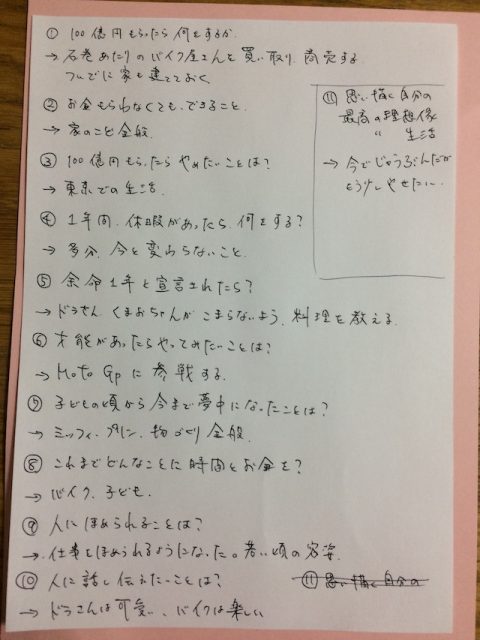 ① 100億円もらったら何をするか.
→ 石巻あたりのバイク屋さんを買い取り、商売する
ついでに家も建てておく
② お金もらわなくても、できること.
→ 家のこと全般.
③ 100億円もらったらやめたいことは?
→ 東京での生活.
④ 1年間、休暇があったら、何をする?
→ 多分、今と変わらないこと.
⑤ 余命1年と宣言されたら?
→ ドラさん くまおちゃんが こまらないよう、料理を教える.
⑥ 才能があったらやってみたいことは?
→ Moto Gpに参戦する.
⑦ 子どもの頃から今まで夢中になったことは?
→ ミッフィ、プリン、物づくり全般.
⑧ これまでどんなことに時間とお金を?
→ バイク、子ども.
⑨ 人にほめられることは?
→ 仕事をほめられるようになった。若い頃の容姿.
⑩ 人に話し伝えたいことは?
→ ドラさんは可愛い、バイクは楽しい
⑪ 思い描く自分の
⑪ 思い描く自分の
最高の理想像
〃 生活
→ 今でじゅうぶんだが
もう少しやせたい.